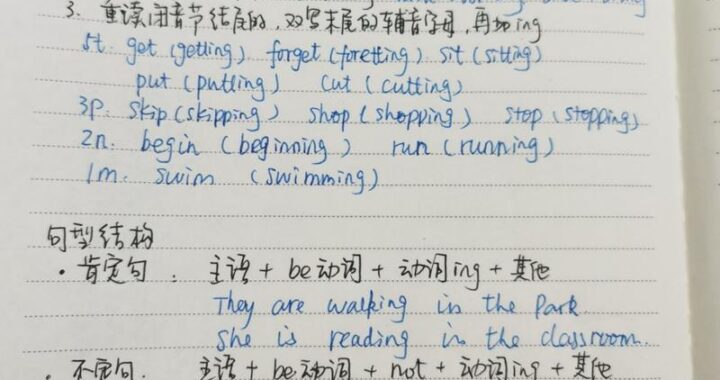 3. 重读闭音节结尾的,双写末尾的辅音字母,再加ing
5t. get (getting) forget (foretting) sit (sitting)
put (putting) cut (cutting)
3p. skip (skipping) shop (shopping) stop (stopping)
2n. begin (beginning) run (running)
1m. swim (swimming)
句型结构
• 肯定句: 主语 + be动词 + 动词ing + 其他
They are walking in the Park.
She is reading in the classroom.
• 不定句. 主语 + be动词 + not + 动词ing + 其他